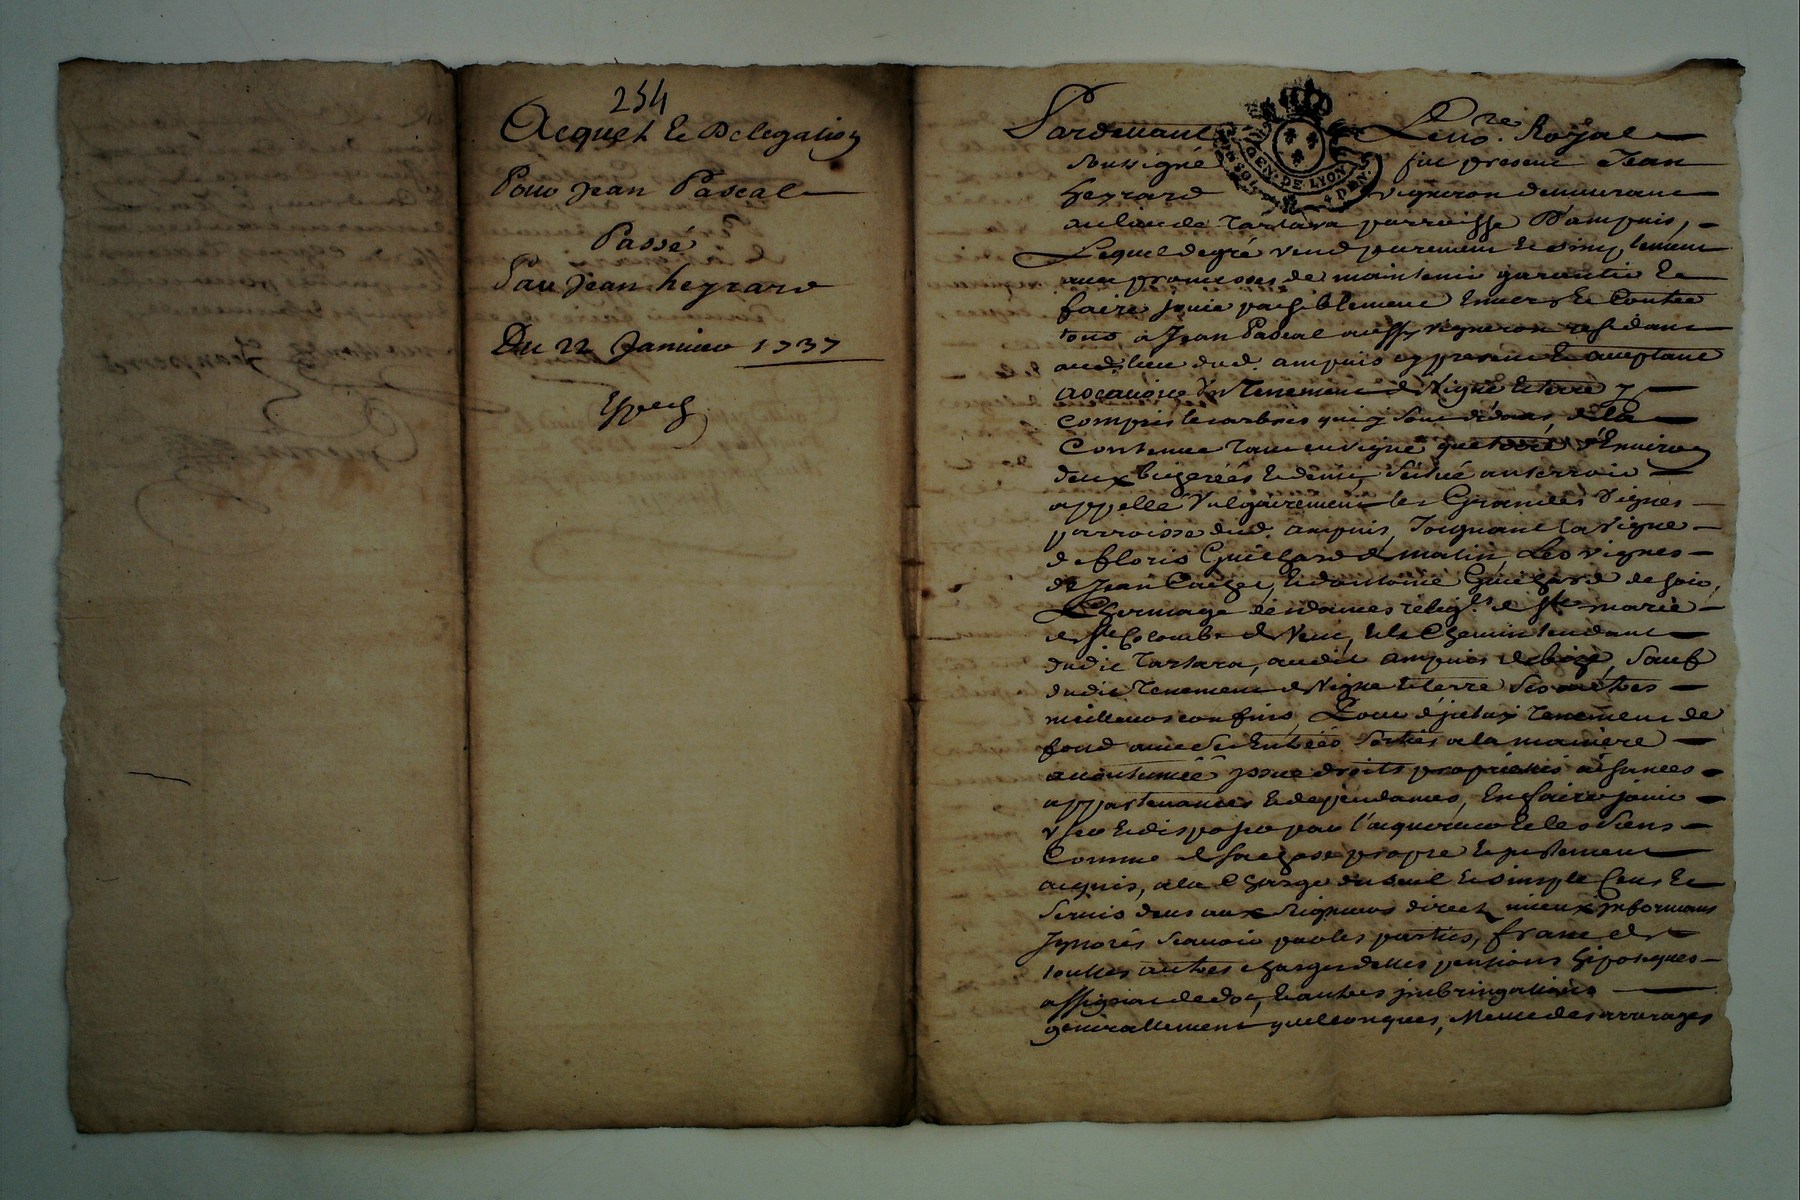 254
Acquet Et Delegation
Pour Jean Pascal
Passé
Par Jean heyrard
Du 22 Janvier 1737
Expedⁿ
Pardevant Le noʳᵉ Royal
GEN. DE LYON
DEN.
soussigné fut present Jean
heyrard vigneron demeurant
au lieu de Tartara parroisse D'ampuis,
Lequel de gré vend purement et simplement
avec promesses de maintenir garantir Et
faire jouir paisiblement Envers Et Contre
tous, à Jean Pascal aussy vigneron residant
audit lieu dud. ampuis cy present Et acceptant
ascavoir Un Tenement de Vigne Et terre y
compris les arbres qui y sont dedans, de la
Contenue Tant en vigne que terre d'Environ
deux bicherées Et demie, Scitué au terroir
appellé Vulgairement les Grandes Vignes
parroisse dud. ampuis, Joignant la Vigne
de floris Guichard de matin, Les vignes
de Jean Et d'antoine Guichard de soir,
L'hermage des dames religˢ de Ste marie
de Ste Colombe de Vent, Et le Chemin tendant
dudit Tartara, audit ampuis de bize, Sauf
dudit Tenement de Vigne Et terre Ses autres
meilleurs confins, Pour dejceluy Tenement de
fond avec Ses Entrées Sorties a la maniere
accoutumée yssue droits proprietés aisances
appartenances Et dependances, En faire jouir
User Et disposer par l'acquereur Et les Siens
Comme de Sa chose propre Et justement
acquis, a la Charge du seul Et simple Cens Et
Servis deus aux Seigneurs direct mieux Informans
Ignorés Scavoir par les parties, franc de
touttes autres charges dettes pensions hipoteques
assignat de dot, Et autres jmbringations
generallement quelconques, Meme des arrerages